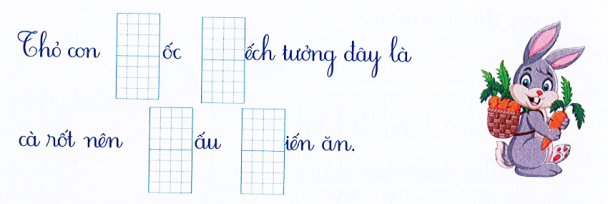 Thỏ con ốc ếch tưởng đây là
cà rốt nên ấu iến ăn.